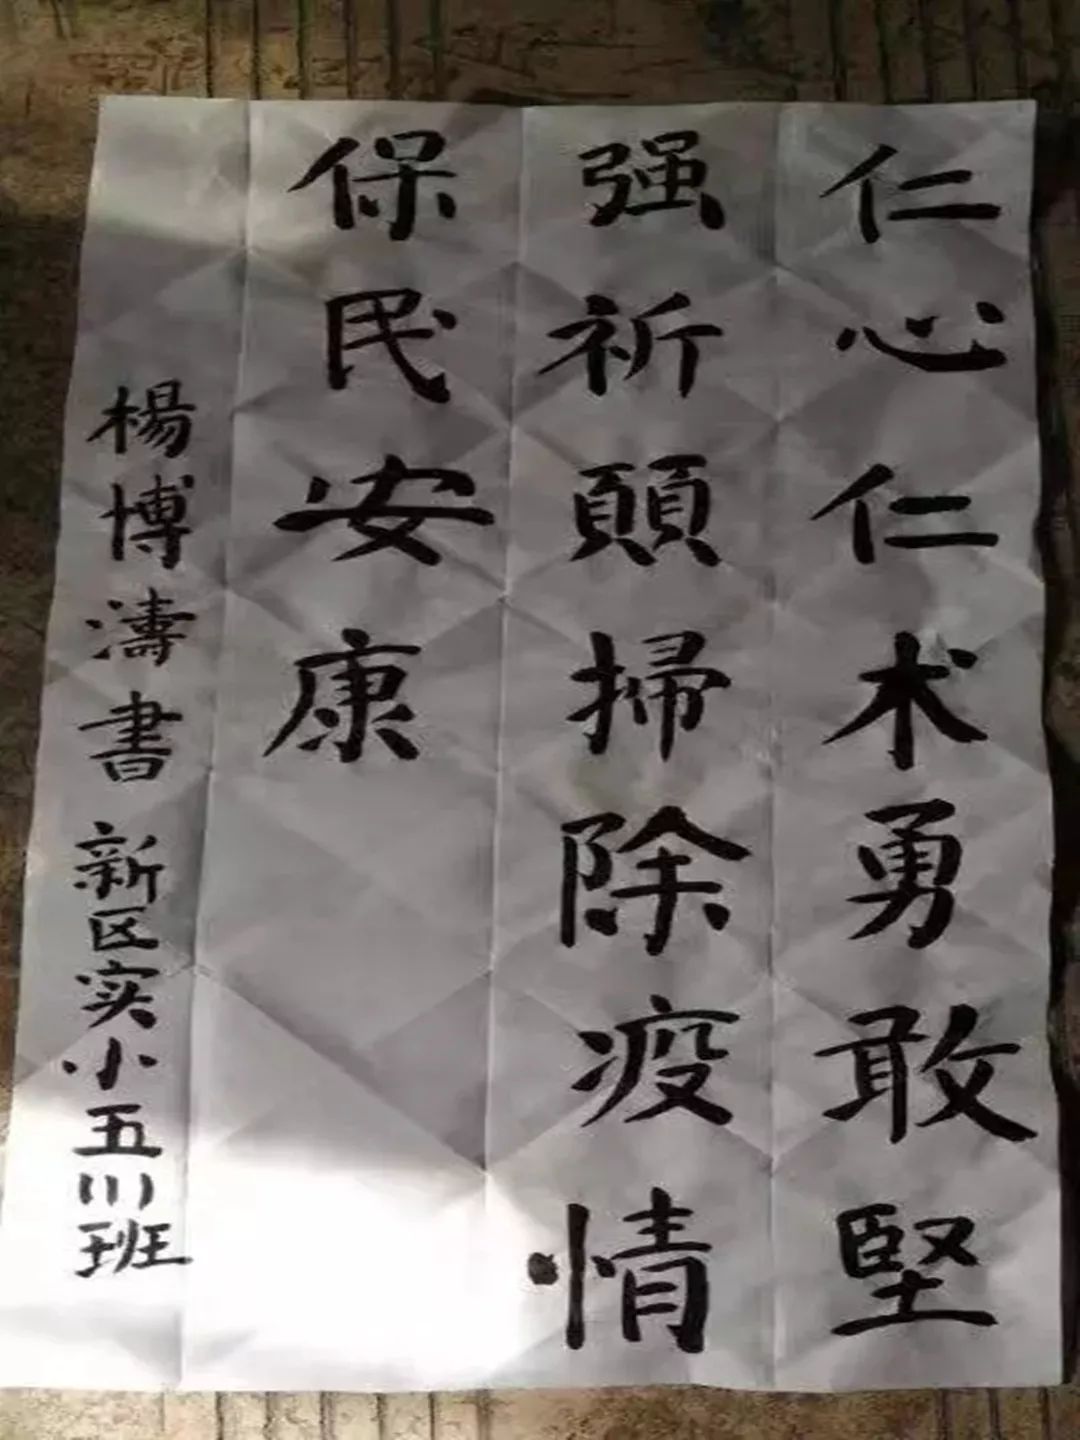 仁心仁术勇敢堅
强祈願掃除疫情
保民安康
楊博濤書 新区实小五川班